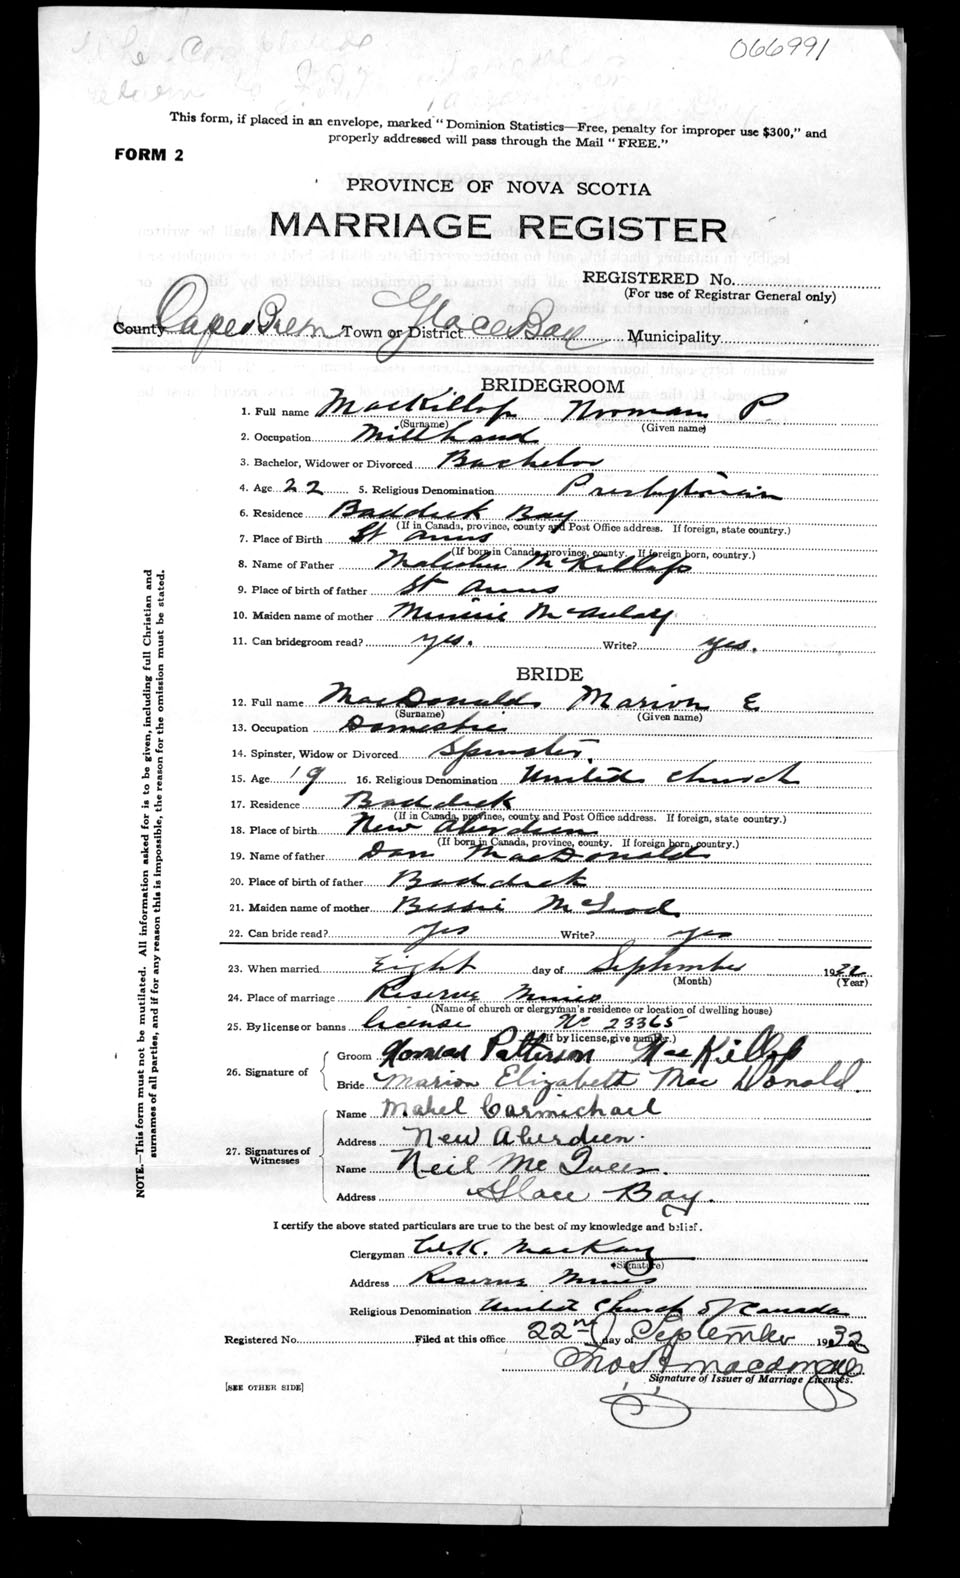 066991
This form, if placed in an envelope, marked "Dominion Statistics—Free, penalty for improper use $300," and
properly addressed will pass through the Mail "FREE."
FORM 2
PROVINCE OF NOVA SCOTIA
MARRIAGE REGISTER
REGISTERED No.
(For use of Registrar General only)
County Cape Breton Town or District Glace Bay Municipality
BRIDEGROOM
1. Full name MacKillop Norman P
(Surname) (Given name)
2. Occupation Millhand
3. Bachelor, Widower or Divorced Bachelor
4. Age 22 5. Religious Denomination Presbyterian
6. Residence Baddeck Bay
(If in Canada, province, county and Post Office address. If foreign, state country.)
7. Place of Birth St Anns
(If born in Canada, province, county. If foreign born, country.)
8. Name of Father Malcolm McKillop
9. Place of birth of father St Anns
10. Maiden name of mother Minnie McAulay
11. Can bridegroom read? yes. Write? yes.
BRIDE
12. Full name MacDonald Marion E
(Surname) (Given name)
13. Occupation Domestic
14. Spinster, Widow or Divorced Spinster
15. Age 19 16. Religious Denomination United Church
17. Residence Baddeck
(If in Canada, province, county and Post Office address. If foreign, state country.)
18. Place of birth New Aberdeen
(If born in Canada, province, county. If foreign born, country.)
19. Name of father Dan MacDonald
20. Place of birth of father Baddeck
21. Maiden name of mother Bessie McLeod
22. Can bride read? yes Write? yes
23. When married Eight day of September 1932
(Month) (Year)
24. Place of marriage Reserve Mines
(Name of church or clergyman's residence or location of dwelling house)
25. By license or banns license No 23365
(If by license, give number.)
26. Signature of
Groom Norman Patterson MacKillop
Bride Marion Elizabeth MacDonald.
27. Signatures of Witnesses
Name Mabel Carmichael
Address New Aberdeen.
Name Neil Mc
Address Glace Bay.
I certify the above stated particulars are true to the best of my knowledge and belief.
Clergyman W.K. MacKay
(Signature)
Address Reserve Mines
Religious Denomination United Church of Canada
Registered No. Filed at this office 22nd day of September 1932
Signature of Issuer of Marriage Licenses.
[SEE OTHER SIDE]
NOTE.—This form must not be mutilated. All information asked for is to be given, including full Christian and
surnames of all parties, and if for any reason this is impossible, the reason for the omission must be stated.